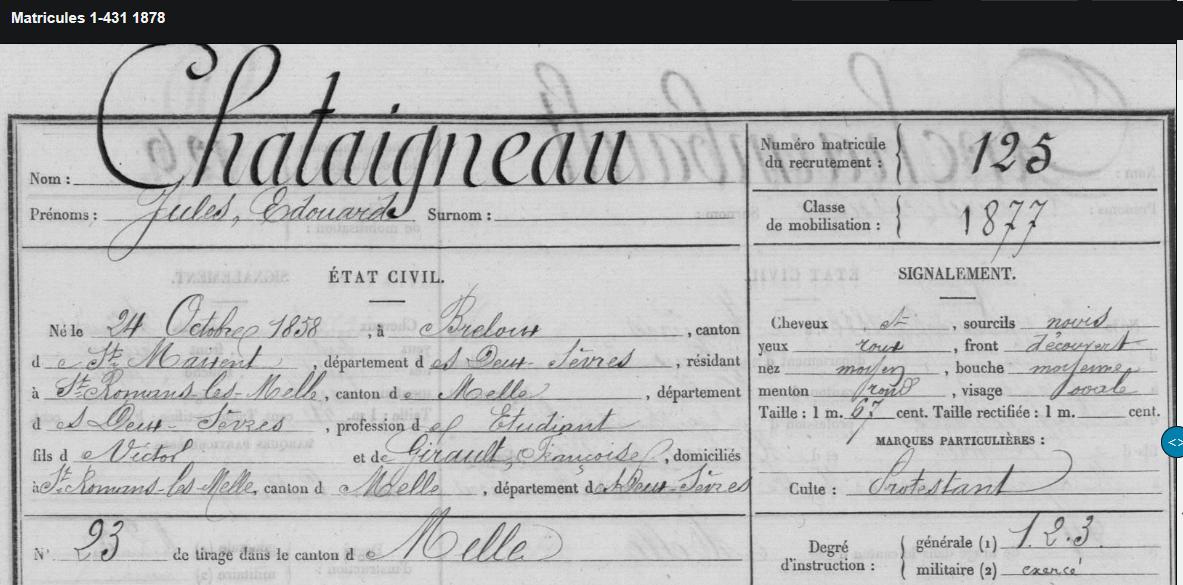 Matricules 1-431 1878
Nom : Chataigneau
Prénoms : Jules, Edouard Surnom :
Numéro matricule du recrutement : 125
Classe de mobilisation : 1877
ÉTAT CIVIL.
Né le 24 Octobre 1858, à Breloux, canton
d e St Maixent, département d es Deux-Sèvres, résidant
à St Romans-les-Melle, canton d e Melle, département
d es Deux-Sèvres, profession d' Etudiant
fils d e Victor et de Girault, Françoise, domiciliés
à St Romans-les-Melle, canton d e Melle, département d es Deux-Sèvres
N° 23 de tirage dans le canton d e Melle
SIGNALEMENT.
Cheveux et, sourcils noirs
yeux roux, front découvert
nez moyen, bouche moyenne
menton rond, visage ovale
Taille : 1 m. 67 cent. Taille rectifiée : 1 m. cent.
MARQUES PARTICULIÈRES :
Culte : Protestant
Degré d'instruction : générale (1) 1.2.3.
militaire (2) exercé